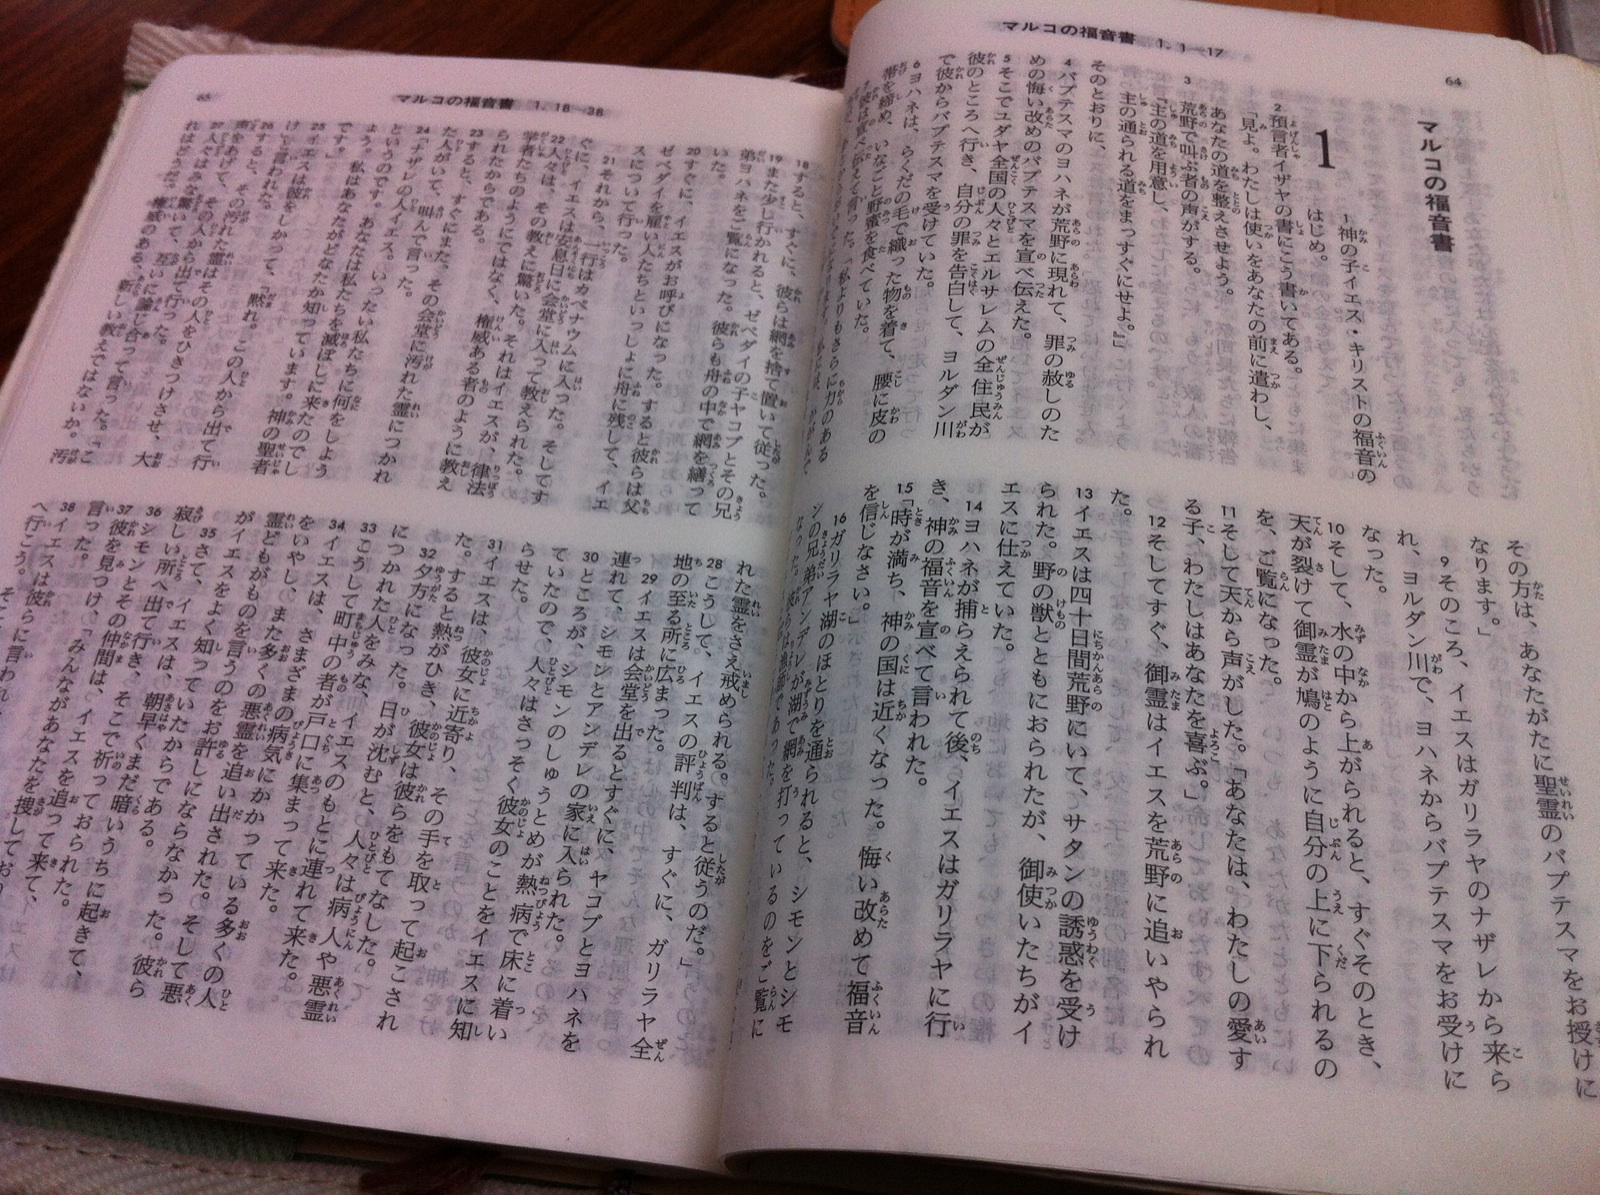 マルコの福音書 1. 1―17
64
マルコの福音書
1
1神の子イエス・キリストの福音の
はじめ。
2預言者イザヤの書にこう書いてある。
「見よ。わたしは使いをあなたの前に遣わし、
あなたの道を整えさせよう。
3荒野で叫ぶ者の声がする。
『主の道を用意し、
主の通られる道をまっすぐにせよ。』」
そのとおりに、
4バプテスマのヨハネが荒野に現れて、罪の赦しのた
めの悔い改めのバプテスマを宣べ伝えた。
5そこでユダヤ全国の人々とエルサレムの全住民が
彼のところへ行き、自分の罪を告白して、ヨルダン川
で彼からバプテスマを受けていた。
6ヨハネは、らくだの毛で織った物を着て、腰に皮の
帯を締め、いなごと野蜜を食べていた。
7彼は宣べ伝えて言った。「私よりもさらに力のある
その方は、あなたがたに聖霊のバプテスマをお授けに
なります。」
9そのころ、イエスはガリラヤのナザレから来ら
れ、ヨルダン川で、ヨハネからバプテスマをお受けに
なった。
10そして、水の中から上がられると、すぐそのとき、
天が裂けて御霊が鳩のように自分の上に下られるの
を、ご覧になった。
11そして天から声がした。「あなたは、わたしの愛す
る子、わたしはあなたを喜ぶ。」
12そしてすぐ、御霊はイエスを荒野に追いやられ
た。
13イエスは四十日間荒野にいて、サタンの誘惑を受け
られた。野の獣とともにおられたが、御使いたちがイ
エスに仕えていた。
14ヨハネが捕らえられて後、イエスはガリラヤに行
き、神の福音を宣べて言われた。
15「時が満ち、神の国は近くなった。悔い改めて福音
を信じなさい。」
16ガリラヤ湖のほとりを通られると、シモンとシモ
ンの兄弟アンデレが湖で網を打っているのをご覧に
なった。彼らは漁師であった。
マルコの福音書 1. 18―38
65
18すると、すぐに、彼らは網を捨て置いて従った。
19また少し行かれると、ゼベダイの子ヤコブとその兄
弟ヨハネをご覧になった。彼らも舟の中で網を繕って
いた。
20すぐに、イエスがお呼びになった。すると彼らは父
ゼベダイを雇い人たちといっしょに舟に残して、イエ
スについて行った。
21それから、一行はカペナウムに入った。そしてす
ぐに、イエスは安息日に会堂に入って教えられた。
22人々は、その教えに驚いた。それはイエスが、律法
学者たちのようにではなく、権威ある者のように教え
られたからである。
23すると、すぐにまた、その会堂に汚れた霊につかれ
た人がいて、叫んで言った。
24「ナザレの人イエス。いったい私たちに何をしよう
というのです。あなたは私たちを滅ぼしに来たのでし
ょう。私はあなたがどなたか知っています。神の聖者
です。」
25イエスは彼をしかって、「黙れ。この人から出て行
け」と言われた。
26すると、その汚れた霊はその人をひきつけさせ、大
声をあげて、その人から出て行った。
27人々はみな驚いて、互いに論じ合って言った。「こ
れはどうだ。権威のある、新しい教えではないか。汚
れた霊をさえ戒められる。すると従うのだ。」
28こうして、イエスの評判は、すぐに、ガリラヤ全
地の至る所に広まった。
29イエスは会堂を出るとすぐに、ヤコブとヨハネを
連れて、シモンとアンデレの家に入られた。
30ところが、シモンのしゅうとめが熱病で床に着い
ていたので、人々はさっそく彼女のことをイエスに知
らせた。
31イエスは、彼女に近寄り、その手を取って起こされ
た。すると熱がひき、彼女は彼らをもてなした。
32夕方になった。日が沈むと、人々は病人や悪霊
につかれた人をみな、イエスのもとに連れて来た。
33こうして町中の者が戸口に集まって来た。
34イエスは、さまざまの病気にかかっている多くの人
をいやし、また多くの悪霊を追い出された。そして悪
霊どもがものを言うのをお許しにならなかった。彼ら
がイエスをよく知っていたからである。
35さて、イエスは、朝早くまだ暗いうちに起きて、
寂しい所へ出て行き、そこで祈っておられた。
36シモンとその仲間は、イエスを追って来て、
37彼を見つけ、「みんながあなたを捜しており
言った。
38イエスは彼らに言われ
へ行こう。